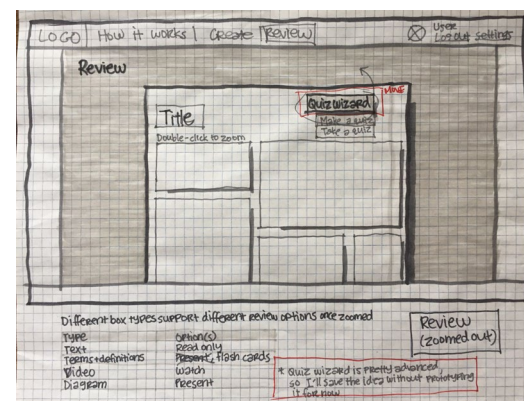 LOGO How it works Create Review User
Logout settings
Review
MINE
Quiz wizard
Title
Make a quiz
Take a quiz
Double-click to zoom
Different box types support different review options once zoomed
Type Option(s)
Text Read only
Terms+definitions Present, flash cards
Video Watch
Diagram Present
Review
(zoomed out)
* Quiz wizard is pretty advanced,
so I'll save the idea without prototyping
it for now